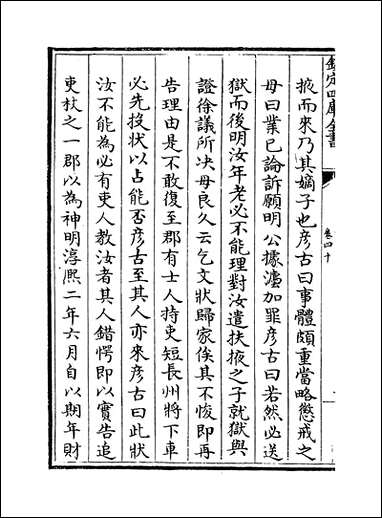 欽定四庫全書
卷四十
掖而來乃其嫡子也彦古曰事體頗重當略懲戒之
母曰業已論訴願明公據灋加罪彦古曰若然必送
獄而後明汝年老必不能理對汝遣扶掖之子就獄與
證徐議所决母良久云乞文狀歸家俟其不悛即再
告理由是不敢復至郡有士人持吏短長州將下車
必先投狀以占能否彦古至其人亦來彦古曰此狀
汝不能為必有吏人教汝者其人錯愕即以實告追
吏杖之一郡以為神明淳熙二年六月自以期年財